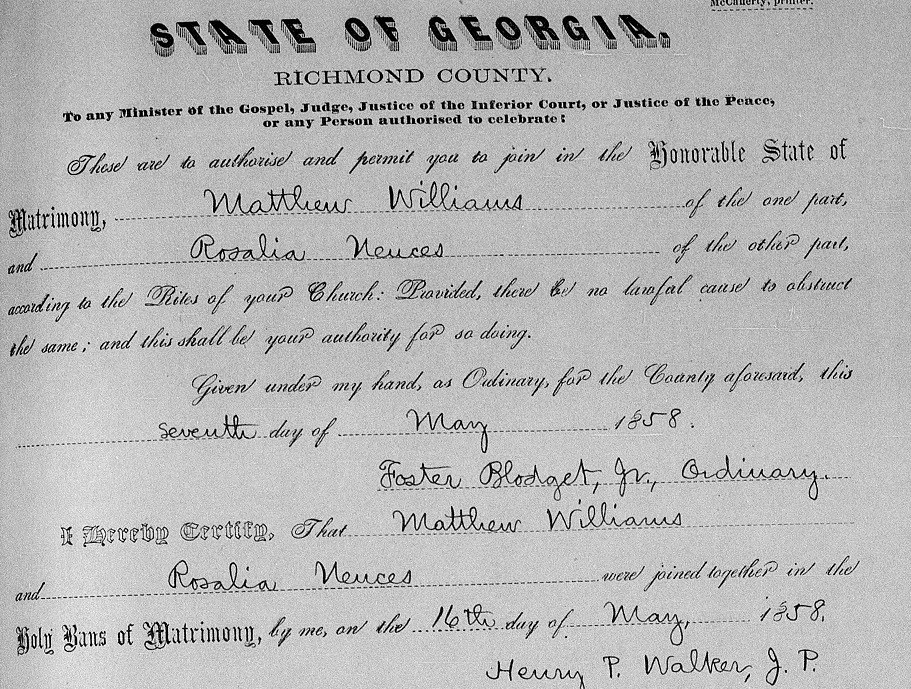 McCafferty, printer.
STATE OF GEORGIA.
RICHMOND COUNTY.
To any Minister of the Gospel, Judge, Justice of the Inferior Court, or Justice of the Peace,
or any Person authorised to celebrate:
These are to authorise and permit you to join in the Honorable State of
Matrimony, Matthew Williams of the one part,
and Rosalia Neuces of the other part,
according to the Rites of your Church: Provided, there be no lawful cause to obstruct
the same; and this shall be your authority for so doing.
Given under my hand, as Ordinary, for the County aforesaid, this
seventh day of May 1858.
Foster Blodget, Jr., Ordinary.
I Hereby Certify, That Matthew Williams
and Rosalia Neuces were joined together in the
Holy Bans of Matrimony, by me, on the 16th day of May, 1858.
Henry P. Walker, J. P.